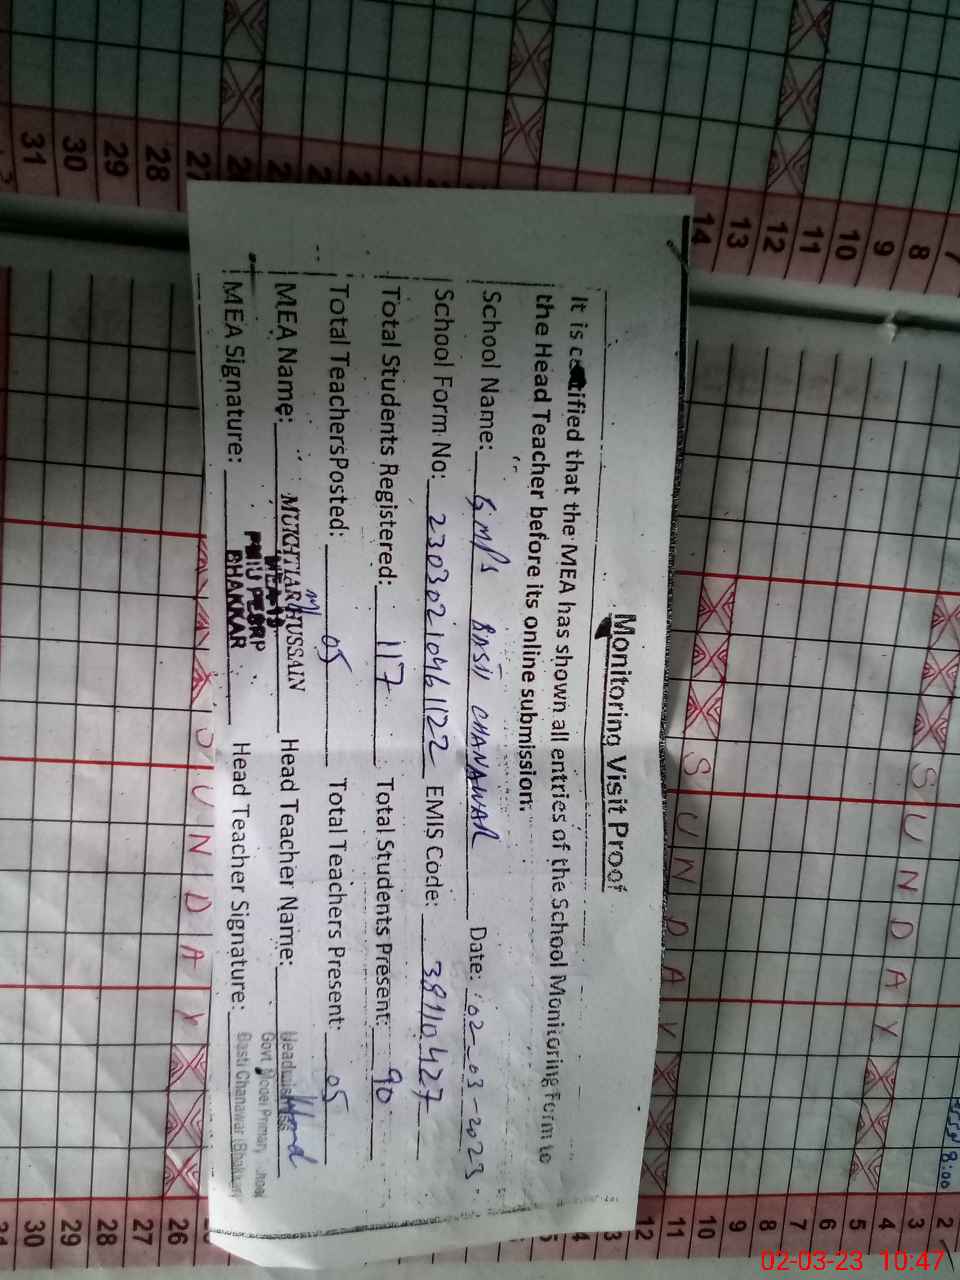 Monitoring Visit Proof
It is certified that the MEA has shown all entries of the School Monitoring Form to
the Head Teacher before its online submission.
School Name: GMPS BASTI CHANAWAR Date: 02-03-2023
School Form No: 23030210461122 EMIS Code: 38110427
Total Students Registered: 117 Total Students Present: 90
Total TeachersPosted: 05 Total Teachers Present: 05
MEA Name: MUKHTIAR HUSSAIN Head Teacher Name:
MEA Signature: Head Teacher Signature:
PMIU PESRP
BHAKKAR
Headmistress
Govt. Model Primary School
Basti Chanawar (Bhakkar)
31 30 29 28 27
14 13 12 11 10 9 8 7
SUNDAY
SUNDAY
SUNDAY
30 29 28 27 26
12 11 10 9 8 7 6 5 4 3 2
8:00
02-03-23 10:47